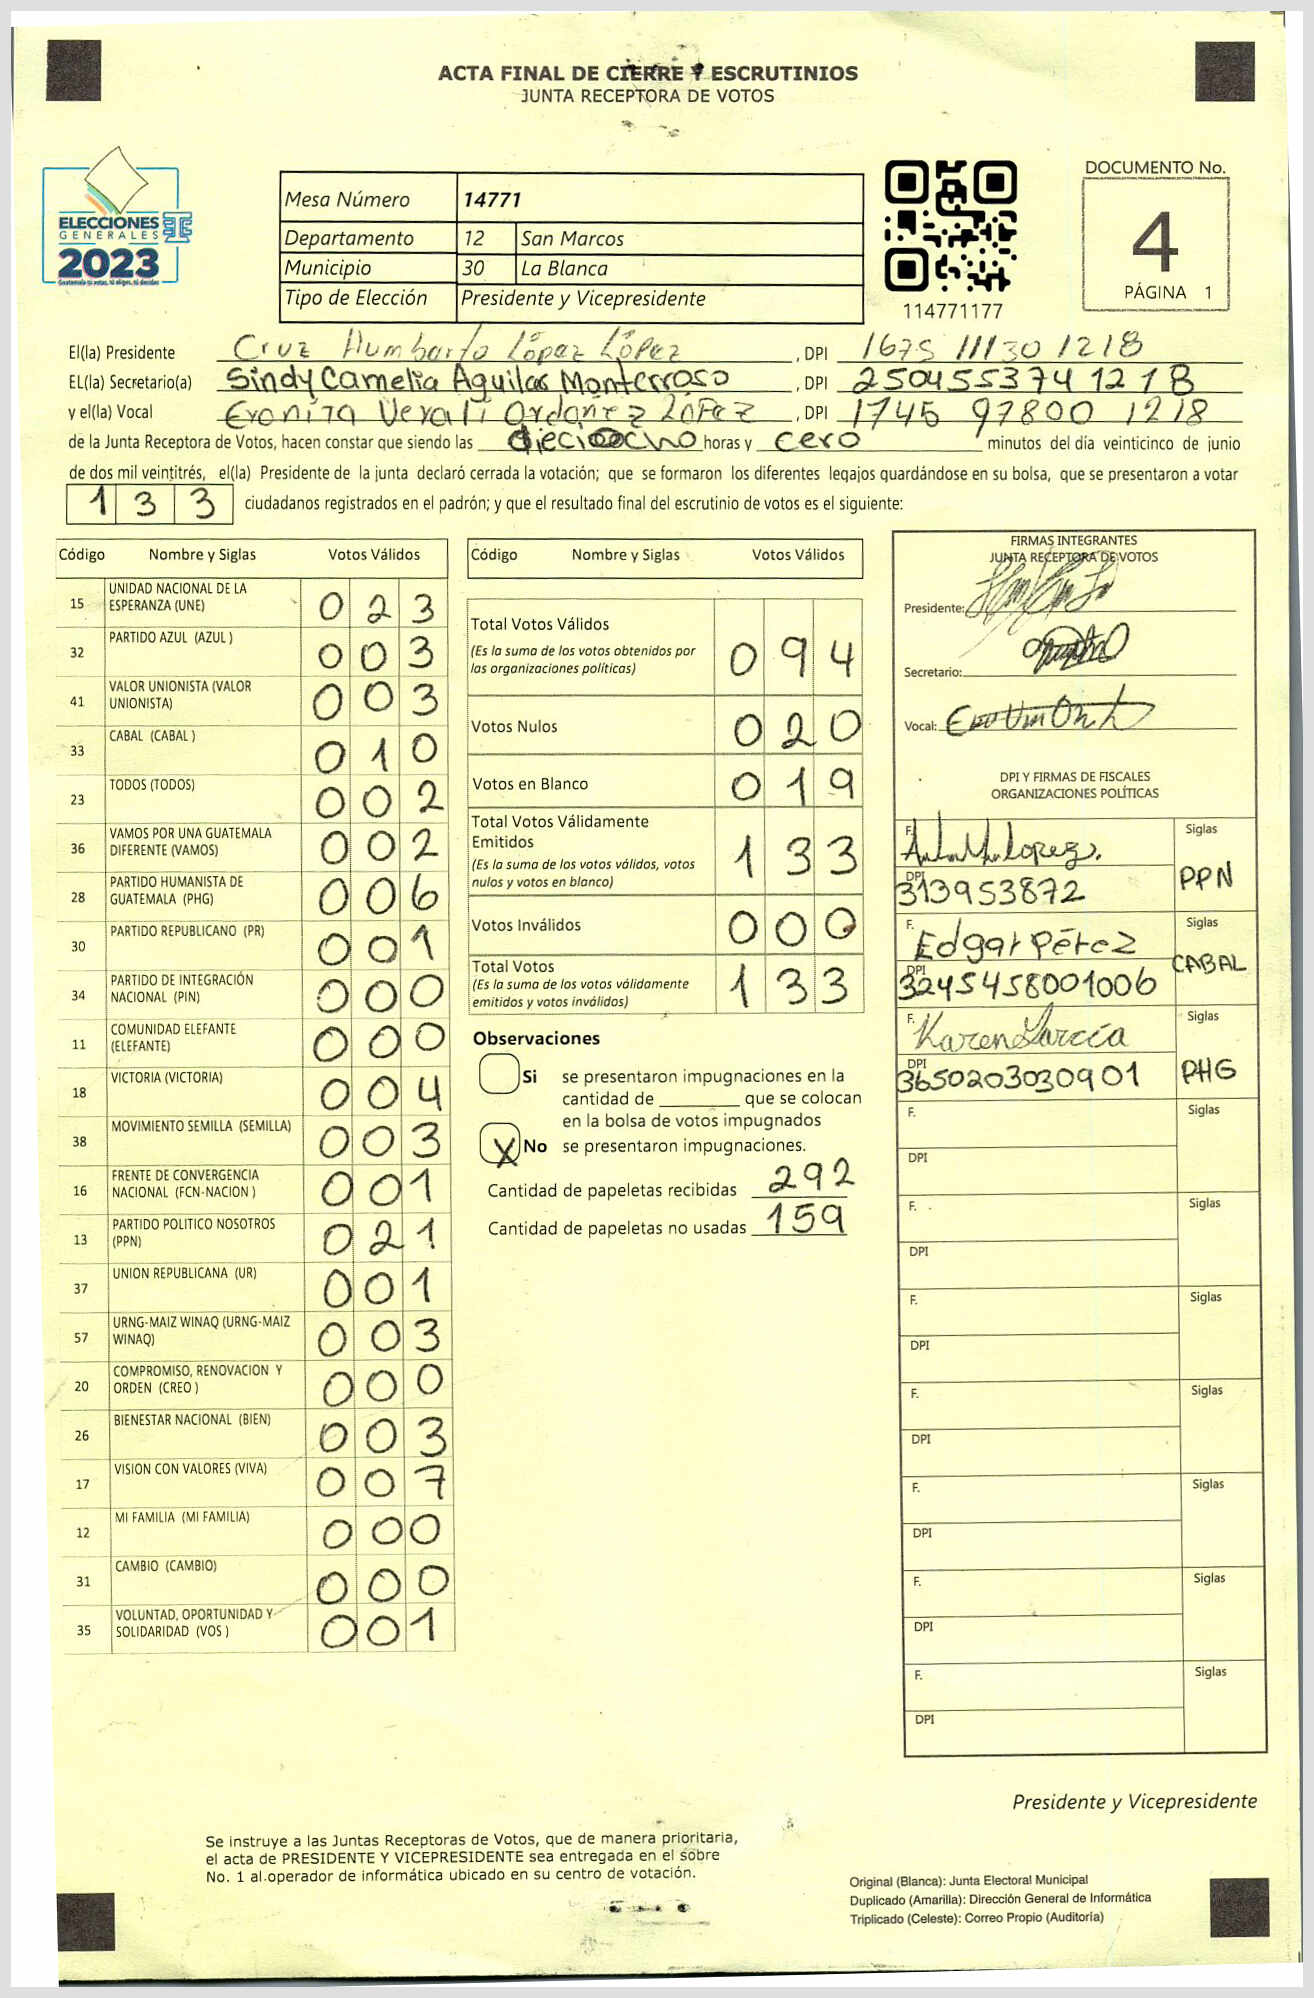 ACTA FINAL DE CIERRE Y ESCRUTINIOS
JUNTA RECEPTORA DE VOTOS
ELECCIONES
GENERALES
2023
Guatemala tú votas, tú eliges, tú decides
Mesa Número 14771
Departamento 12 San Marcos
Municipio 30 La Blanca
Tipo de Elección Presidente y Vicepresidente
114771177
DOCUMENTO No.
4
PÁGINA 1
El(la) Presidente Cruz Humbarto López López , DPI 1675 11130 1218
EL(la) Secretario(a) Sindy Camelia Aguilar Monterroso , DPI 250455374 1218
y el(la) Vocal Ordoñez López , DPI 1745 97800 1218
de la Junta Receptora de Votos, hacen constar que siendo las dieciocho horas y cero minutos del día veinticinco de junio
de dos mil veintitrés, el(la) Presidente de la junta declaró cerrada la votación; que se formaron los diferentes legajos quardándose en su bolsa, que se presentaron a votar
133 ciudadanos registrados en el padrón; y que el resultado final del escrutinio de votos es el siguiente:
Código Nombre y Siglas Votos Válidos
15 UNIDAD NACIONAL DE LA ESPERANZA (UNE) 023
32 PARTIDO AZUL (AZUL ) 003
41 VALOR UNIONISTA (VALOR UNIONISTA) 003
33 CABAL (CABAL ) 010
23 TODOS (TODOS) 002
36 VAMOS POR UNA GUATEMALA DIFERENTE (VAMOS) 002
28 PARTIDO HUMANISTA DE GUATEMALA (PHG) 006
30 PARTIDO REPUBLICANO (PR) 001
34 PARTIDO DE INTEGRACIÓN NACIONAL (PIN) 000
11 COMUNIDAD ELEFANTE (ELEFANTE) 000
18 VICTORIA (VICTORIA) 004
38 MOVIMIENTO SEMILLA (SEMILLA) 003
16 FRENTE DE CONVERGENCIA NACIONAL (FCN-NACION ) 001
13 PARTIDO POLITICO NOSOTROS (PPN) 021
37 UNION REPUBLICANA (UR) 001
57 URNG-MAIZ WINAQ (URNG-MAIZ WINAQ) 003
20 COMPROMISO, RENOVACION Y ORDEN (CREO ) 000
26 BIENESTAR NACIONAL (BIEN) 003
17 VISION CON VALORES (VIVA) 007
12 MI FAMILIA (MI FAMILIA) 000
31 CAMBIO (CAMBIO) 000
35 VOLUNTAD, OPORTUNIDAD Y SOLIDARIDAD (VOS ) 001
Código Nombre y Siglas Votos Válidos
Total Votos Válidos 094
(Es la suma de los votos obtenidos por
las organizaciones políticas)
Votos Nulos 020
Votos en Blanco 019
Total Votos Válidamente
Emitidos 133
(Es la suma de los votos válidos, votos
nulos y votos en blanco)
Votos Inválidos 000
Total Votos 133
(Es la suma de los votos válidamente
emitidos y votos inválidos)
Observaciones
Si se presentaron impugnaciones en la
cantidad de ________ que se colocan
en la bolsa de votos impugnados
X No se presentaron impugnaciones.
Cantidad de papeletas recibidas 292
Cantidad de papeletas no usadas 159
FIRMAS INTEGRANTES
JUNTA RECEPTORA DE VOTOS
Presidente:
Secretario:
Vocal:
DPI Y FIRMAS DE FISCALES
ORGANIZACIONES POLÍTICAS
F. Siglas
DPI 313953872 PPN
F. Edgar Pérez Siglas
DPI 3245458001006 CABAL
F. Karen García Siglas
DPI 3650203030901 PHG
F. Siglas
DPI
F. Siglas
DPI
F. Siglas
DPI
F. Siglas
DPI
F. Siglas
DPI
F. Siglas
DPI
F. Siglas
DPI
Presidente y Vicepresidente
Se instruye a las Juntas Receptoras de Votos, que de manera prioritaria,
el acta de PRESIDENTE Y VICEPRESIDENTE sea entregada en el sobre
No. 1 al operador de informática ubicado en su centro de votación.
Original (Blanca): Junta Electoral Municipal
Duplicado (Amarilla): Dirección General de Informática
Triplicado (Celeste): Correo Propio (Auditoría)